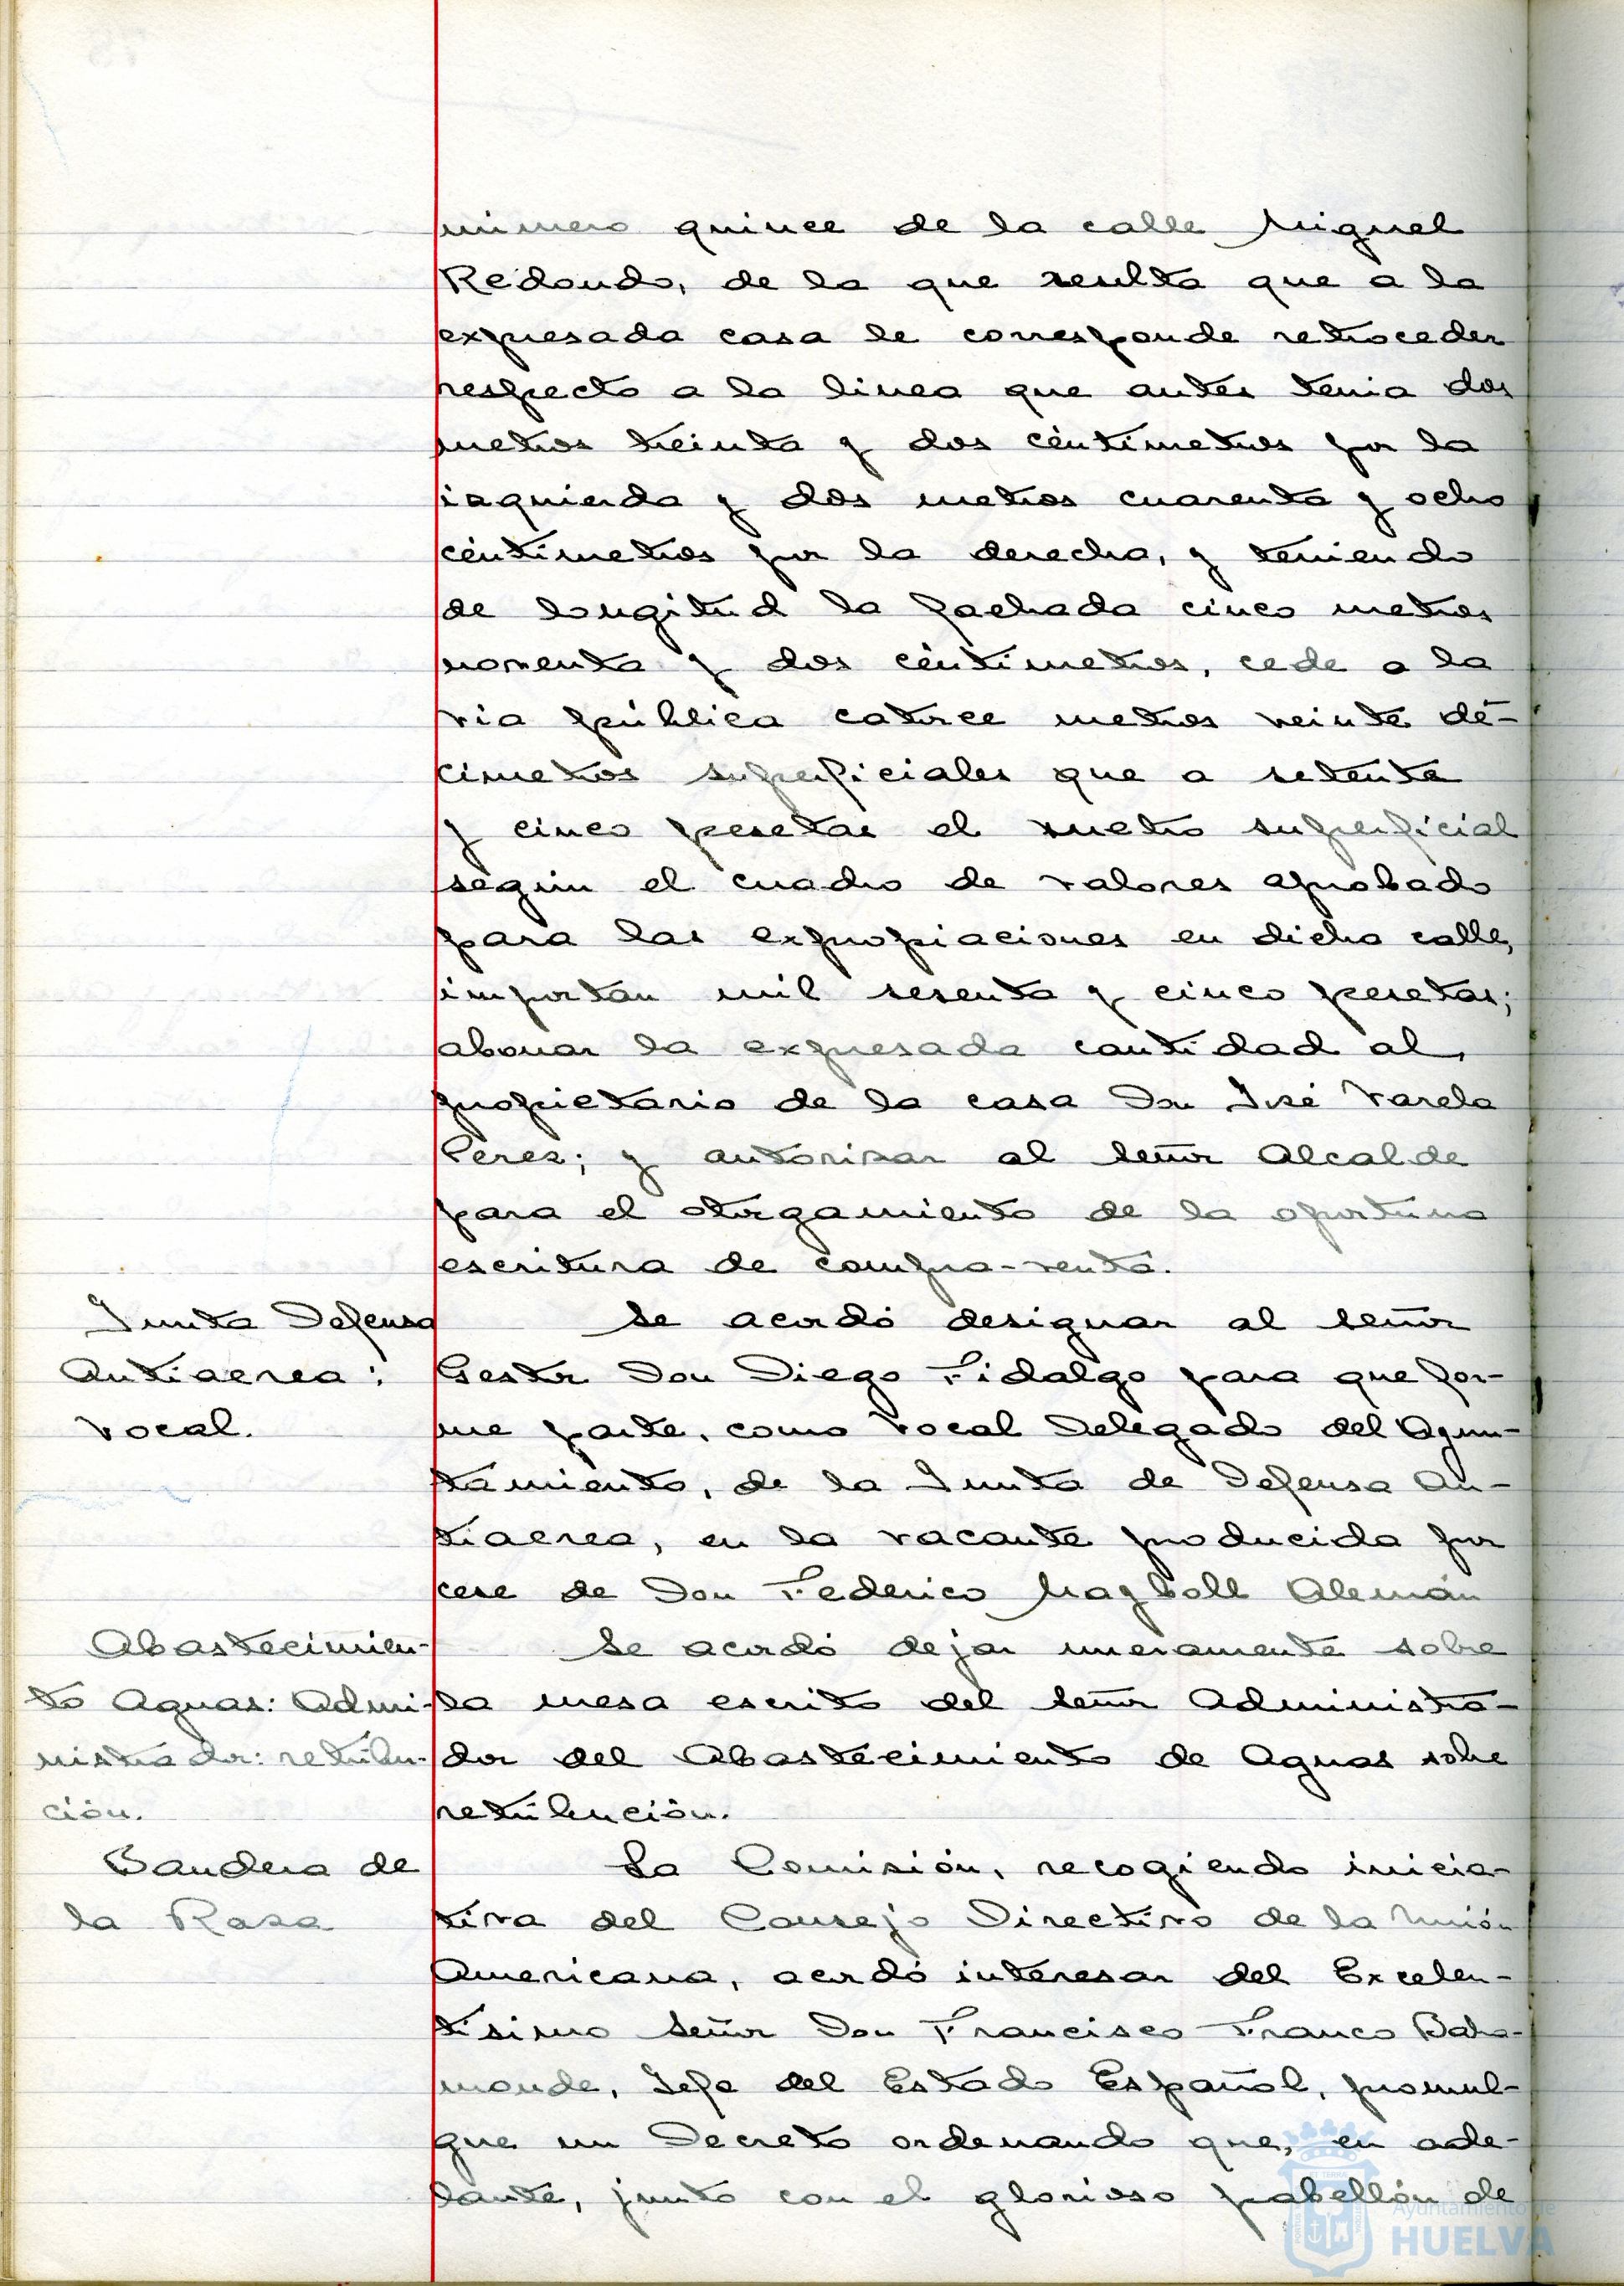 número quince de la calle Miguel
Redondo, de la que resulta que a la
expresada casa le corresponde retroceder
respecto a la linea que antes tenia dos
metros treinta y dos céntimetros por la
izquierda y dos metros cuarenta y ocho
céntimetros por la derecha, y teniendo
de longitud la fachada cinco metros
noventa y dos céntimetros, cede a la
via pública catorce metros veinte dé-
cimetros superficiales que a setenta
y cinco pesetas el metro superficial
según el cuadro de valores aprobado
para las expropiaciones en dicha calle,
importan mil sesenta y cinco pesetas;
abonar la expresada cantidad al
propietario de la casa Don José Varela
Perez; y autorizar al Señor Alcalde
para el otorgamiento de la oportuna
escritura de compra-venta.
Junta Defensa
Antiaerea:
Vocal.
Se acordó designar al Señor
Gestor Don Diego Fidalgo para que for-
me parte, como Vocal Delegado del Ayun-
tamiento, de la Junta de Defensa An-
tiaerea, en la vacante producida por
cese de Don Federico Magboll Alemán
Abastecimien-
to Aguas: Admi-
nistrador: retribu-
ción.
Se acordó dejar nueramente sobre
la mesa escrito del Señor Administra-
dor del Abastecimiento de Aguas sobre
retribución.
Bandera de
la Raza
La Comisión, recogiendo inicia-
tiva del Consejo Directivo de la Unión
Americana, acordó interesar del Excelen-
tisimo Señor Don Francisco Franco Baha-
monde, Jefe del Estado Español, promul-
gue un Decreto ordenando que, en ade-
lante, junto con el glorioso pabellón de
Ayuntamiento de
HUELVA